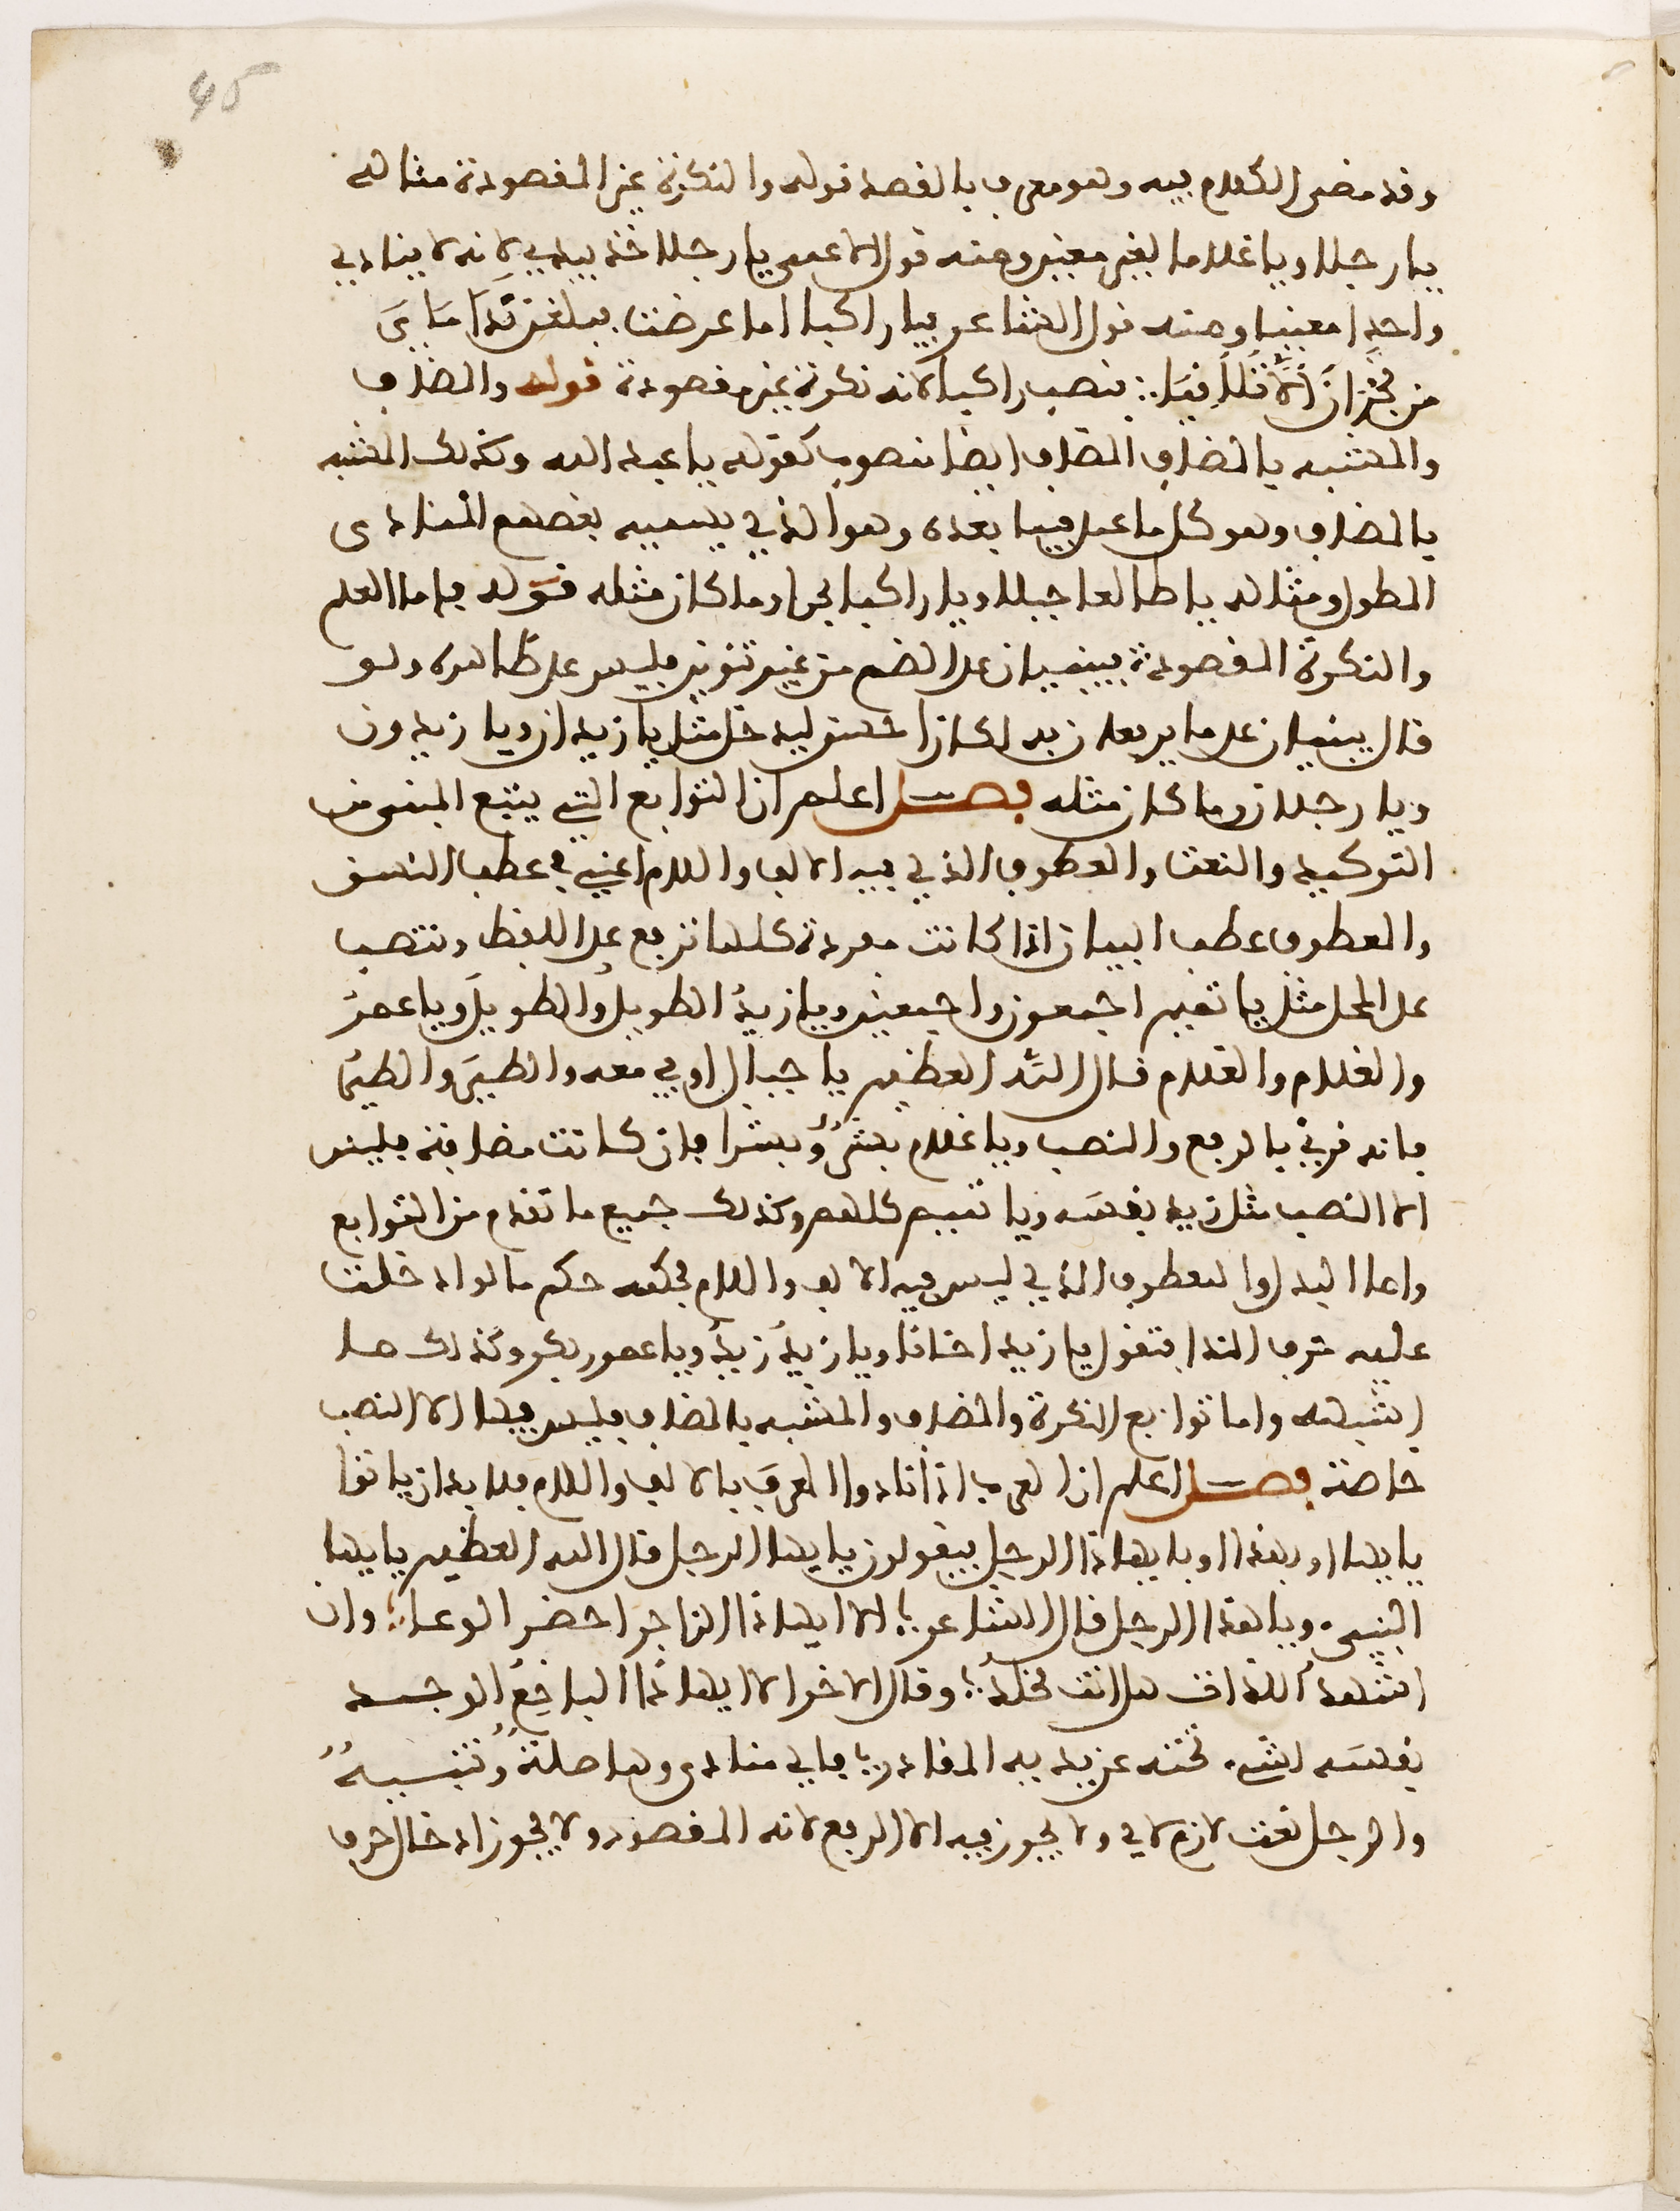 45
وقد مضى الكلام فيه وهو معرب بالقصد قوله والنكرة غير المقصودة مثاله
يا رجلا ويا غلاما لغير معين ومنه قول الاعمى يا رجلا خذ بيدي لانه لا ينادي
واحدا معينا ومنه قول الشاعر فيا راكبا اما عرضت فبلغن نَدَامَايَ
من نجران ألا تلاقيا ∴ فنصب راكبا لانه نكرة غير مقصودة قوله والمضاف
والمشبه بالمضاف المضاف ايضا منصوب كقوله يا عبد الله وكذلك المشبه
بالمضاف وهو كل ما عمل فيما بعده وهو الذي يسميه بعضهم المنادى
المطول ومثاله يا طالعا جبلا ويا راكبا بحرا وما كان مثله قوله فاما العلم
والنكرة المقصودة فيبنيان على الضم من غير تنوين فليس على ظاهره ولو
قال يبنيان على ما يرفعان به لكان احسن ليدخل مثل يا زيدان ويا زيدون
ويا رجلان وما كان مثله فصل اعلم ان التوابع التي يتبع المبني من
التوكيد والنعت والعطوف الذي فيه الالف واللام اعني في عطف النسق
والعطوف عطف البيان اذا كانت مفردة كلها ترفع على اللفظ وتنتصب
على المحل مثل يا تميم اجمعون واجمعين ويا زيدُ الطويلُ والطويلَ ويا عمرُ
والغلام والغلام قال الله العظيم يا جبال اوبي معه والطيرَ والطيرُ
فانه قرئ بالرفع والنصب ويا غلام بشرٌ وبشرا فان كانت مضافة فليس
الا النصب مثل زيد نفسَه ويا تميم كلهم وكذلك جميع ما تقدم من التوابع
واما البدل والعطوف الذي ليس فيه الالف واللام فحكمه حكم ما لو ادخلت
عليه حرف الندا فتقول يا زيد اخانا ويا زيدُ زيدُ ويا عمرو بكر وكذلك ما
اشبهه واما توابع النكرة والمضاف والمشبه بالمضاف فليس فيها الا النصب
خاصة فصل اعلم ان العرب اذا نادوا المعرف بالالف واللام فلا بد ان ياتوا
بايها او بهذا او بايهاذا الرجل فيقولون يا يها الرجل قال الله العظيم يا يها
النبيء ويا هذا الرجل قال الشاعر ؛ الا ايهاذا الزاجرا حضر الوغا ؛ وان
اشهد اللذات هل انت مخلد ؛ وقال الاخر الا ايهاذا الباخع الوجد
نفسَه لشيء نحته عن يديه المقادر ؛ فاي منادى وها صلة وتنبيه
والرجل نعت لازم لاي ولا يجوز فيه الا الرفع لانه المقصود ولا يجوز ادخال حرف